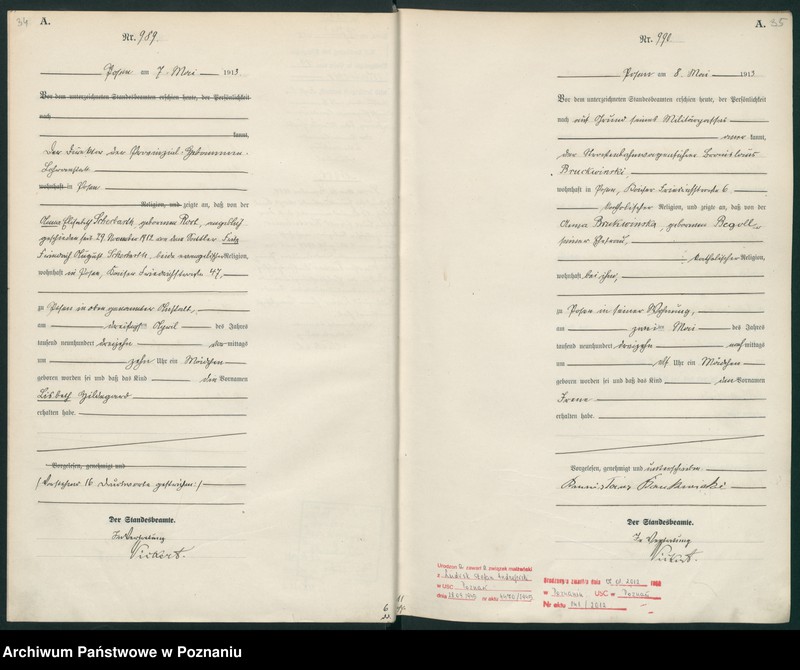 34
A.
Nr. 989.
Posen am 7. Mai 1913
Vor dem unterzeichneten Standesbeamten erschien heute, der Persönlichkeit
nach
kannt,
Der Direktor der Provinzial-Hebammen-
Lehranstalt
wohnhaft in Posen
Religion, und zeigte an, daß von der
Anna Elisabeth Scherbarth, geborenen Rost, angeblich
geschieden seit 29. November 1912 von dem Fritz
Friedrich August Scherbarth, beide evangelischer Religion,
wohnhaft in Posen, Kaiser Friedrichstraße 47,
zu Posen in oben genannter Anstalt,
am dreißigsten April des Jahres
tausend neunhundert dreizehn mittags
um zehn Uhr ein Mädchen
geboren worden sei und daß das Kind den Vornamen
Lisbeth Hildegard
erhalten habe.
Vorgelesen, genehmigt und
(Vorstehend 16 Druckworte gestrichen.)
Der Standesbeamte.
In Vertretung
A. 35
Nr. 990
Posen am 8. Mai 1913
Vor dem unterzeichneten Standesbeamten erschien heute, der Persönlichkeit
nach auf Grund seines Militärpasses
aner kannt,
der
wohnhaft in Posen, Kaiser Friedrichstraße 6
katholischer Religion, und zeigte an, daß von der
Anna geborenen Begoll,
seiner Ehefrau,
katholischer Religion,
wohnhaft bei ihm,
zu Posen in seiner Wohnung,
am zweiten Mai des Jahres
tausend neunhundert dreizehn nach mittags
um elf Uhr ein Mädchen
geboren worden sei und daß das Kind den Vornamen
Irene
erhalten habe.
Vorgelesen, genehmigt und unterschrieben
Der Standesbeamte.
In Vertretung
Urodzon zawarł związek małżeński
z
w USC Poznań
dnia nr aktu
Urodzony/a zmarł/a dnia
w Poznaniu USC w Poznań
Nr aktu / 2012
Archiwum Państwowe w Poznaniu